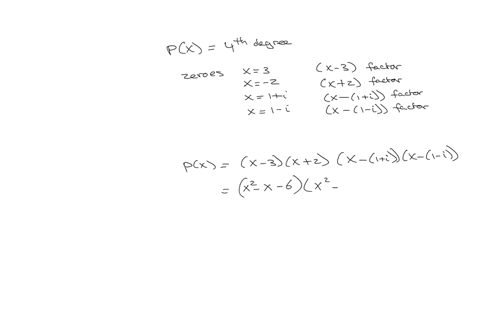 P(x) = 4th degree
zeroes x = 3 (x-3) factor
x = -2 (x+2) factor
x = 1+i (x-(1+i)) factor
x = 1-i (x-(1-i)) factor
P(x) = (x-3)(x+2) (x-(1+i))(x-(1-i))
= (x²-x-6)(x² -